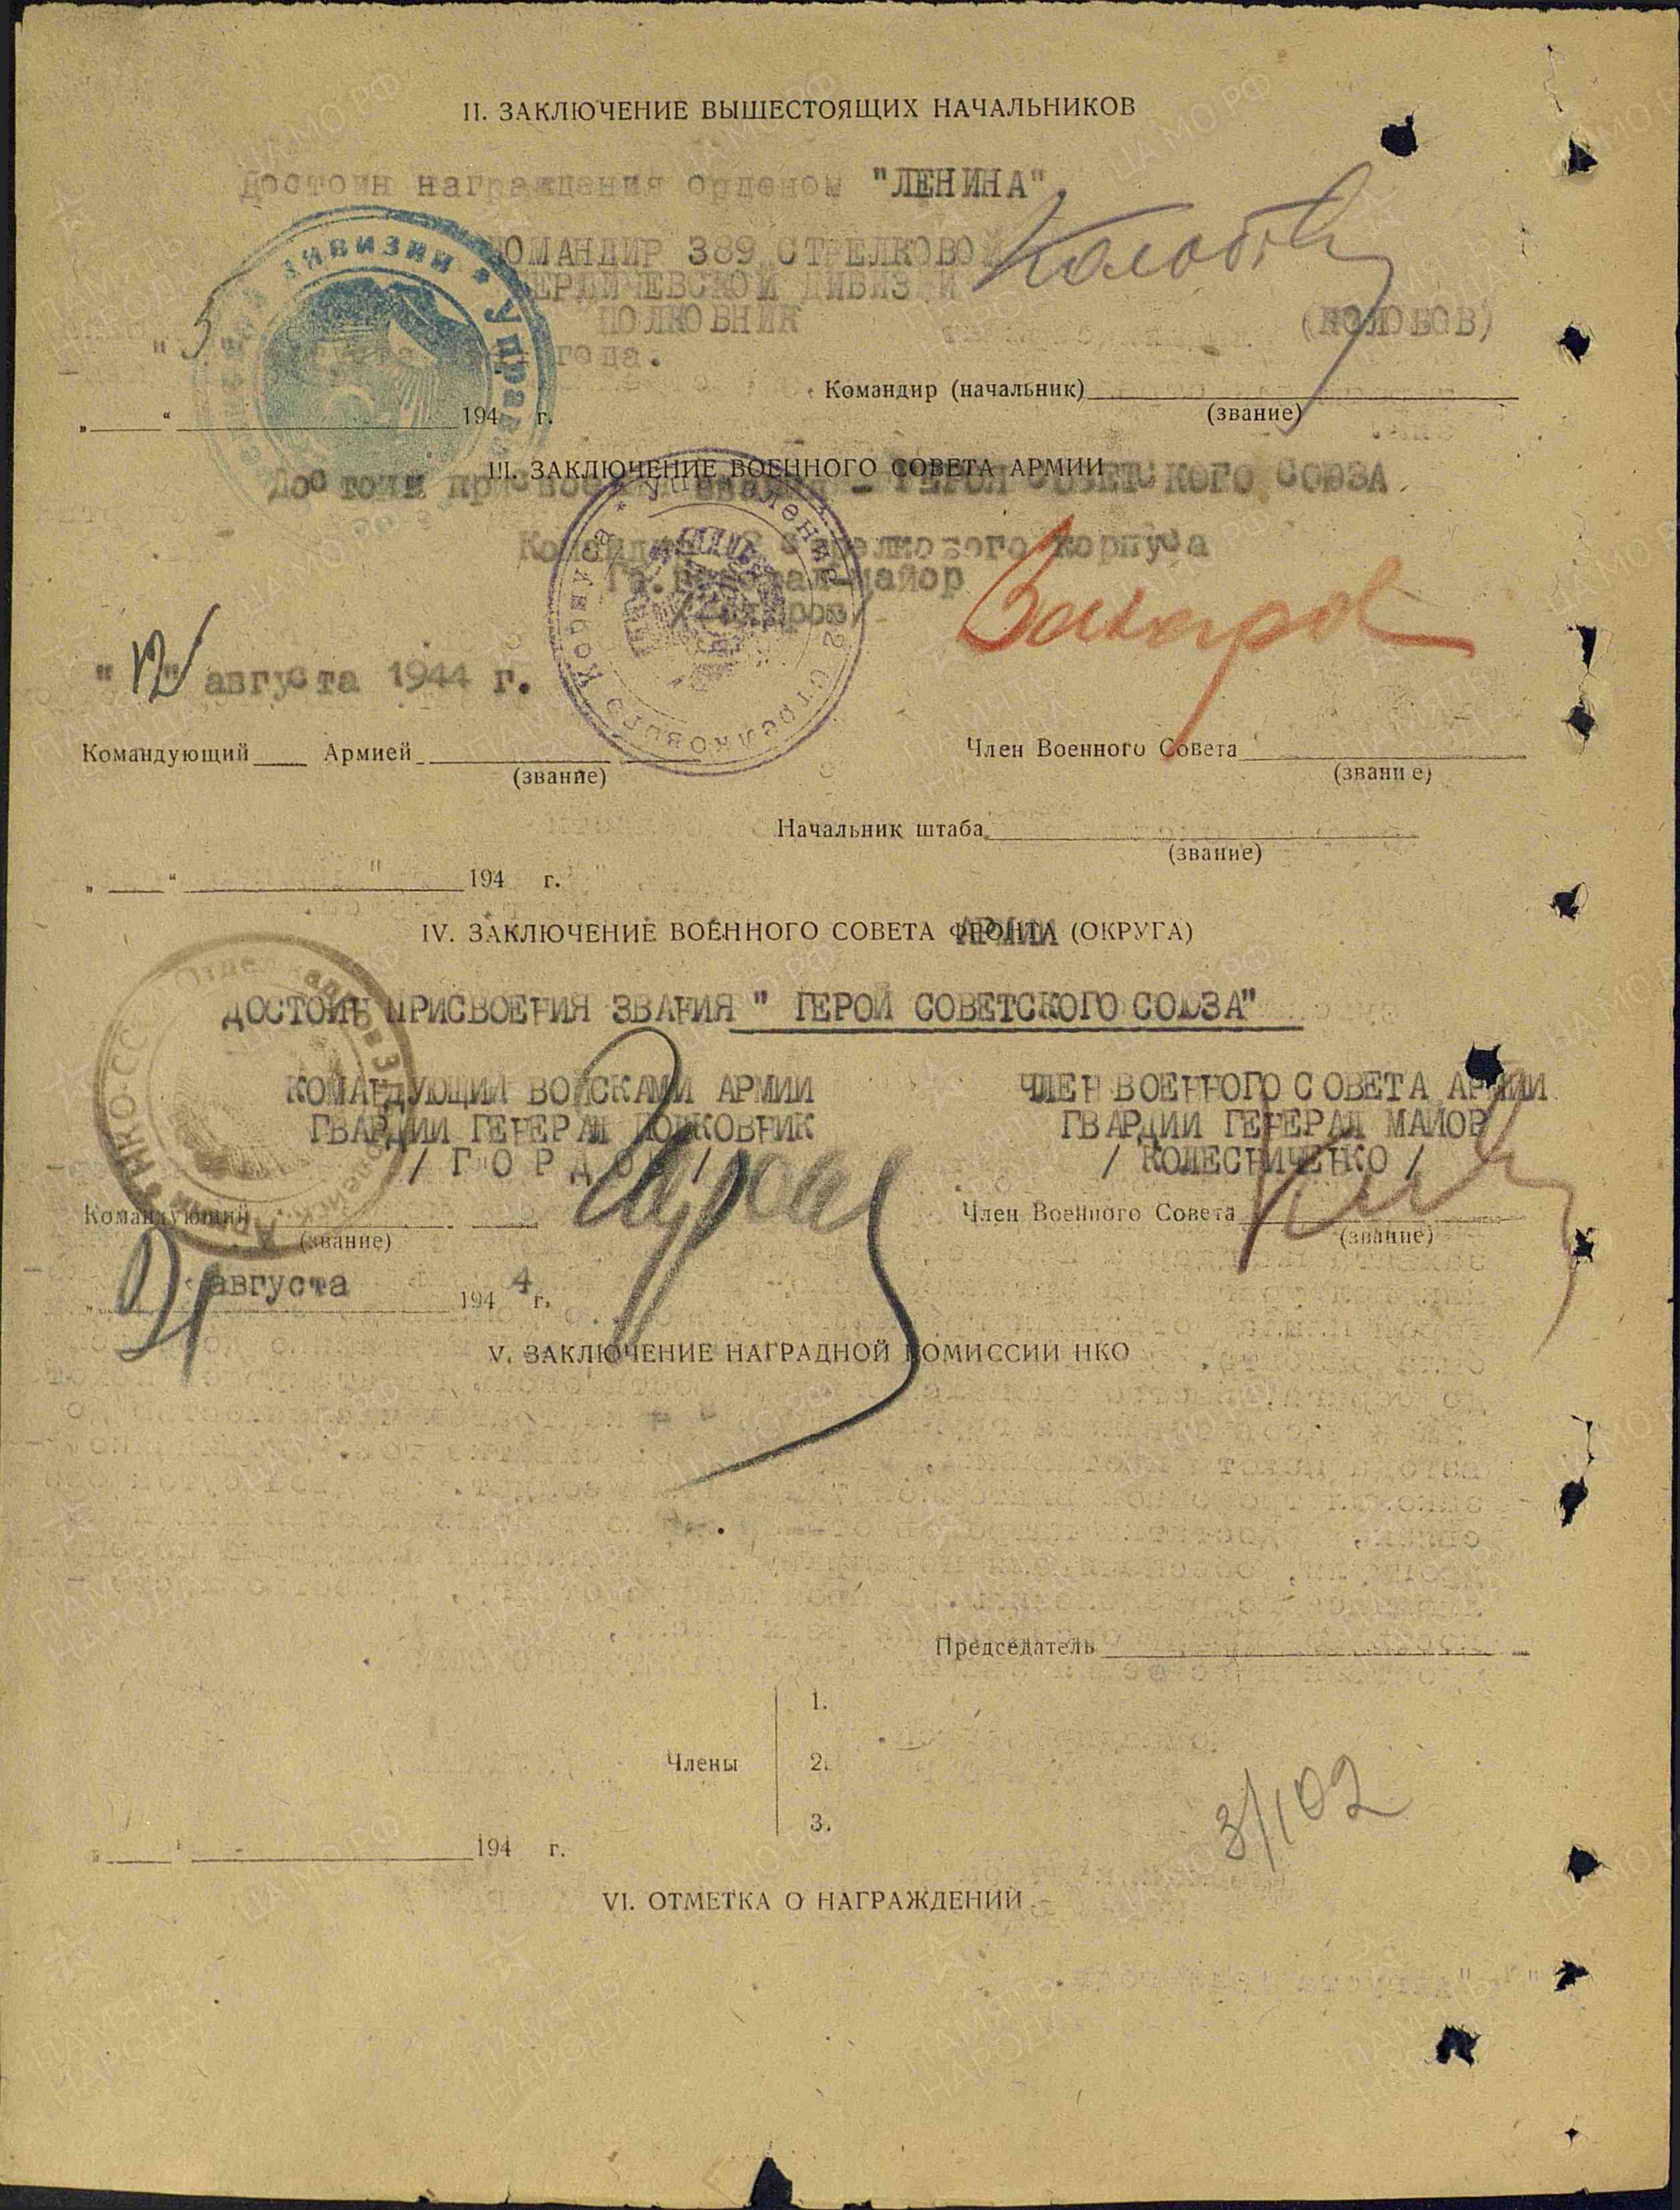 II. ЗАКЛЮЧЕНИЕ ВЫШЕСТОЯЩИХ НАЧАЛЬНИКОВ
Достоин награждения орденом "ЛЕНИНА".
КОМАНДИР 389 СТРЕЛКОВОЙ
БЕРДИЧЕВСКОЙ ДИВИЗИИ
ПОЛКОВНИК (КОЛОБОВ)
"5" года.
Командир (начальник)
(звание)
„ “ 194 г.
III. ЗАКЛЮЧЕНИЕ ВОЕННОГО СОВЕТА АРМИИ
Достоин присвоения звания - ГЕРОЯ СОВЕТСКОГО СОЮЗА
Командир стрелкового корпуса
Гв. генерал-майор
/Захаров/
Захаров
"12" августа 1944 г.
Командующий Армией
(звание)
Член Военного Совета
(звание)
Начальник штаба
(звание)
„ “ 194 г.
IV. ЗАКЛЮЧЕНИЕ ВОЕННОГО СОВЕТА ФРОНТА АРМИИ (ОКРУГА)
ДОСТОИН ПРИСВОЕНИЯ ЗВАНИЯ " ГЕРОЙ СОВЕТСКОГО СОЮЗА"
КОМАНДУЮЩИЙ ВОЙСКАМИ АРМИИ
ГВАРДИИ ГЕНЕРАЛ ПОЛКОВНИК
/ Г О Р Д О В /
ЧЛЕН ВОЕННОГО СОВЕТА АРМИИ
ГВАРДИИ ГЕНЕРАЛ МАЙОР
/ КОЛЕСНИЧЕНКО /
Командующий
(звание)
Член Военного Совета
(звание)
21 августа 1944 г.
V. ЗАКЛЮЧЕНИЕ НАГРАДНОЙ КОМИССИИ НКО
Председатель
Члены
1.
2.
3.
3/102
„ “ 194 г.
VI. ОТМЕТКА О НАГРАЖДЕНИИ